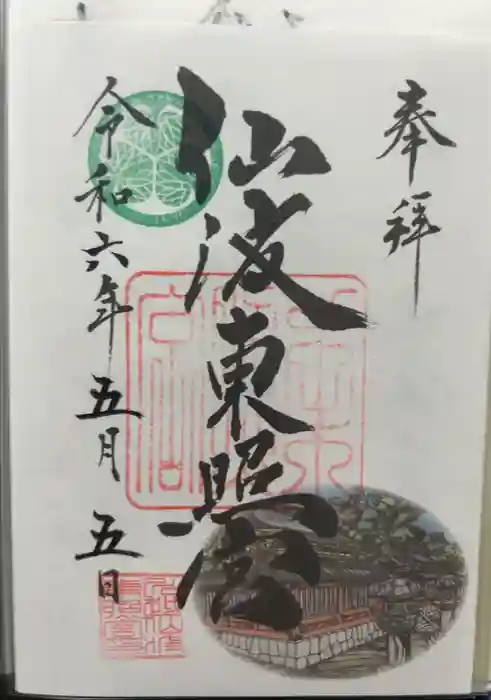 奉拝
仙波東照宮
令和六年五月五日